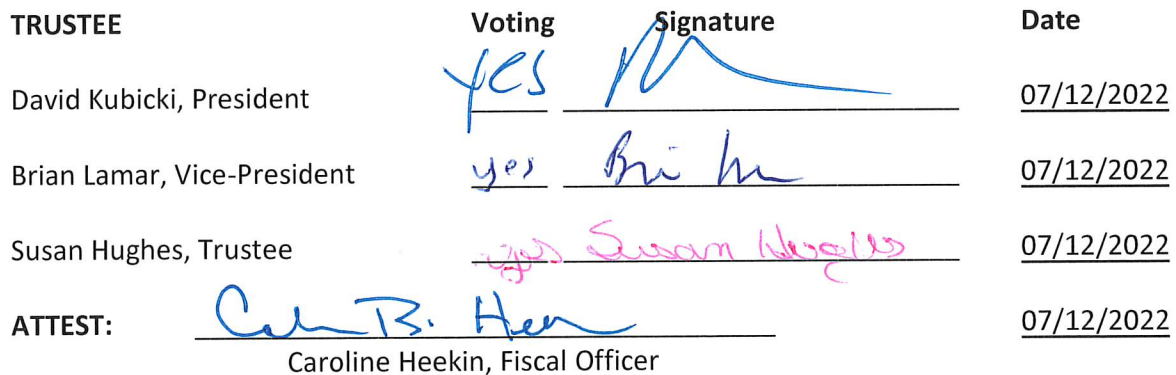 TRUSTEE Voting Signature Date
David Kubicki, President yes 07/12/2022
Brian Lamar, Vice-President yes 07/12/2022
Susan Hughes, Trustee yes Susan Hughes 07/12/2022
ATTEST: B. 07/12/2022
Caroline Heekin, Fiscal Officer